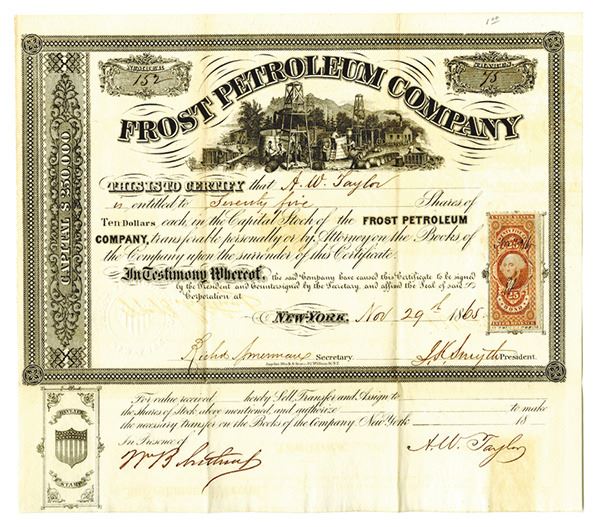 1 50
NUMBER
157
SHARES
75
FROST PETROLEUM COMPANY
CAPITAL $250,000
THIS IS TO CERTIFY that A. W. Taylor
is entitled to Seventy five Shares of
Ten Dollars each, in the Capital Stock of the FROST PETROLEUM
COMPANY, transferable personally or by Attorney on the Books of
the Company upon the surrender of this Certificate.
In Testimony Whereof, the said Company have caused this Certificate to be signed
by the President and Countersigned by the Secretary, and affixed the Seal of said
Corporation at
NEW-YORK, Nov 29th 1865
Secretary.
J. K. Smyth President.
25
For value received hereby Sell, Transfer and Assign to
the shares of Stock above mentioned, and authorize to make
the necessary transfer on the Books of the Company New York 18
In Presence of
STAMP
Wm B
A. W. Taylor